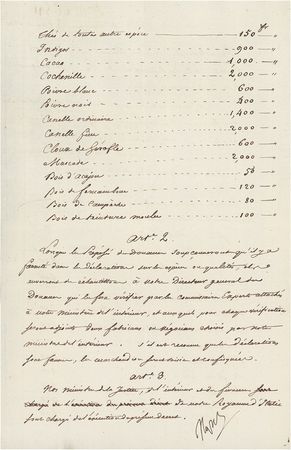 Thé de toute autre espèce 150 fr
Indigo 900 "
Cacao 1,000 "
Cochenille 2,000 "
Poivre blanc 600 "
Poivre noir 400 "
Canelle ordinaire 1,400 "
Canelle fine 2,000 "
Cloux de Girofle 600 "
Muscade 2,000 "
Bois d'acajou 50 "
Bois de fernambouc 120 "
Bois de Campêche 80 "
Bois de teinture moulu 100 "
Art. 2.
Lorsque les Préposés des douanes soupçonneront qu'il y a
fausseté dans les déclarations sur les espèces ou qualités, ils
enverront des échantillons à notre Directeur général des
Douanes qui les fera vérifier par des commissaires Experts attachés
à notre ministère de l'intérieur, et auxquels pour chaque vérification
seront adjoints deux fabricans ou négocians choisis par notre
ministre de l'intérieur. S'il est reconnu que les déclarations
sont fausses, les marchandises seront saisies et confisquées.
Art. 3.
Nos ministres de la justice, de l'intérieur et des finances
de notre Royaume d'Italie
sont chargés de l'exécution du présent décret.